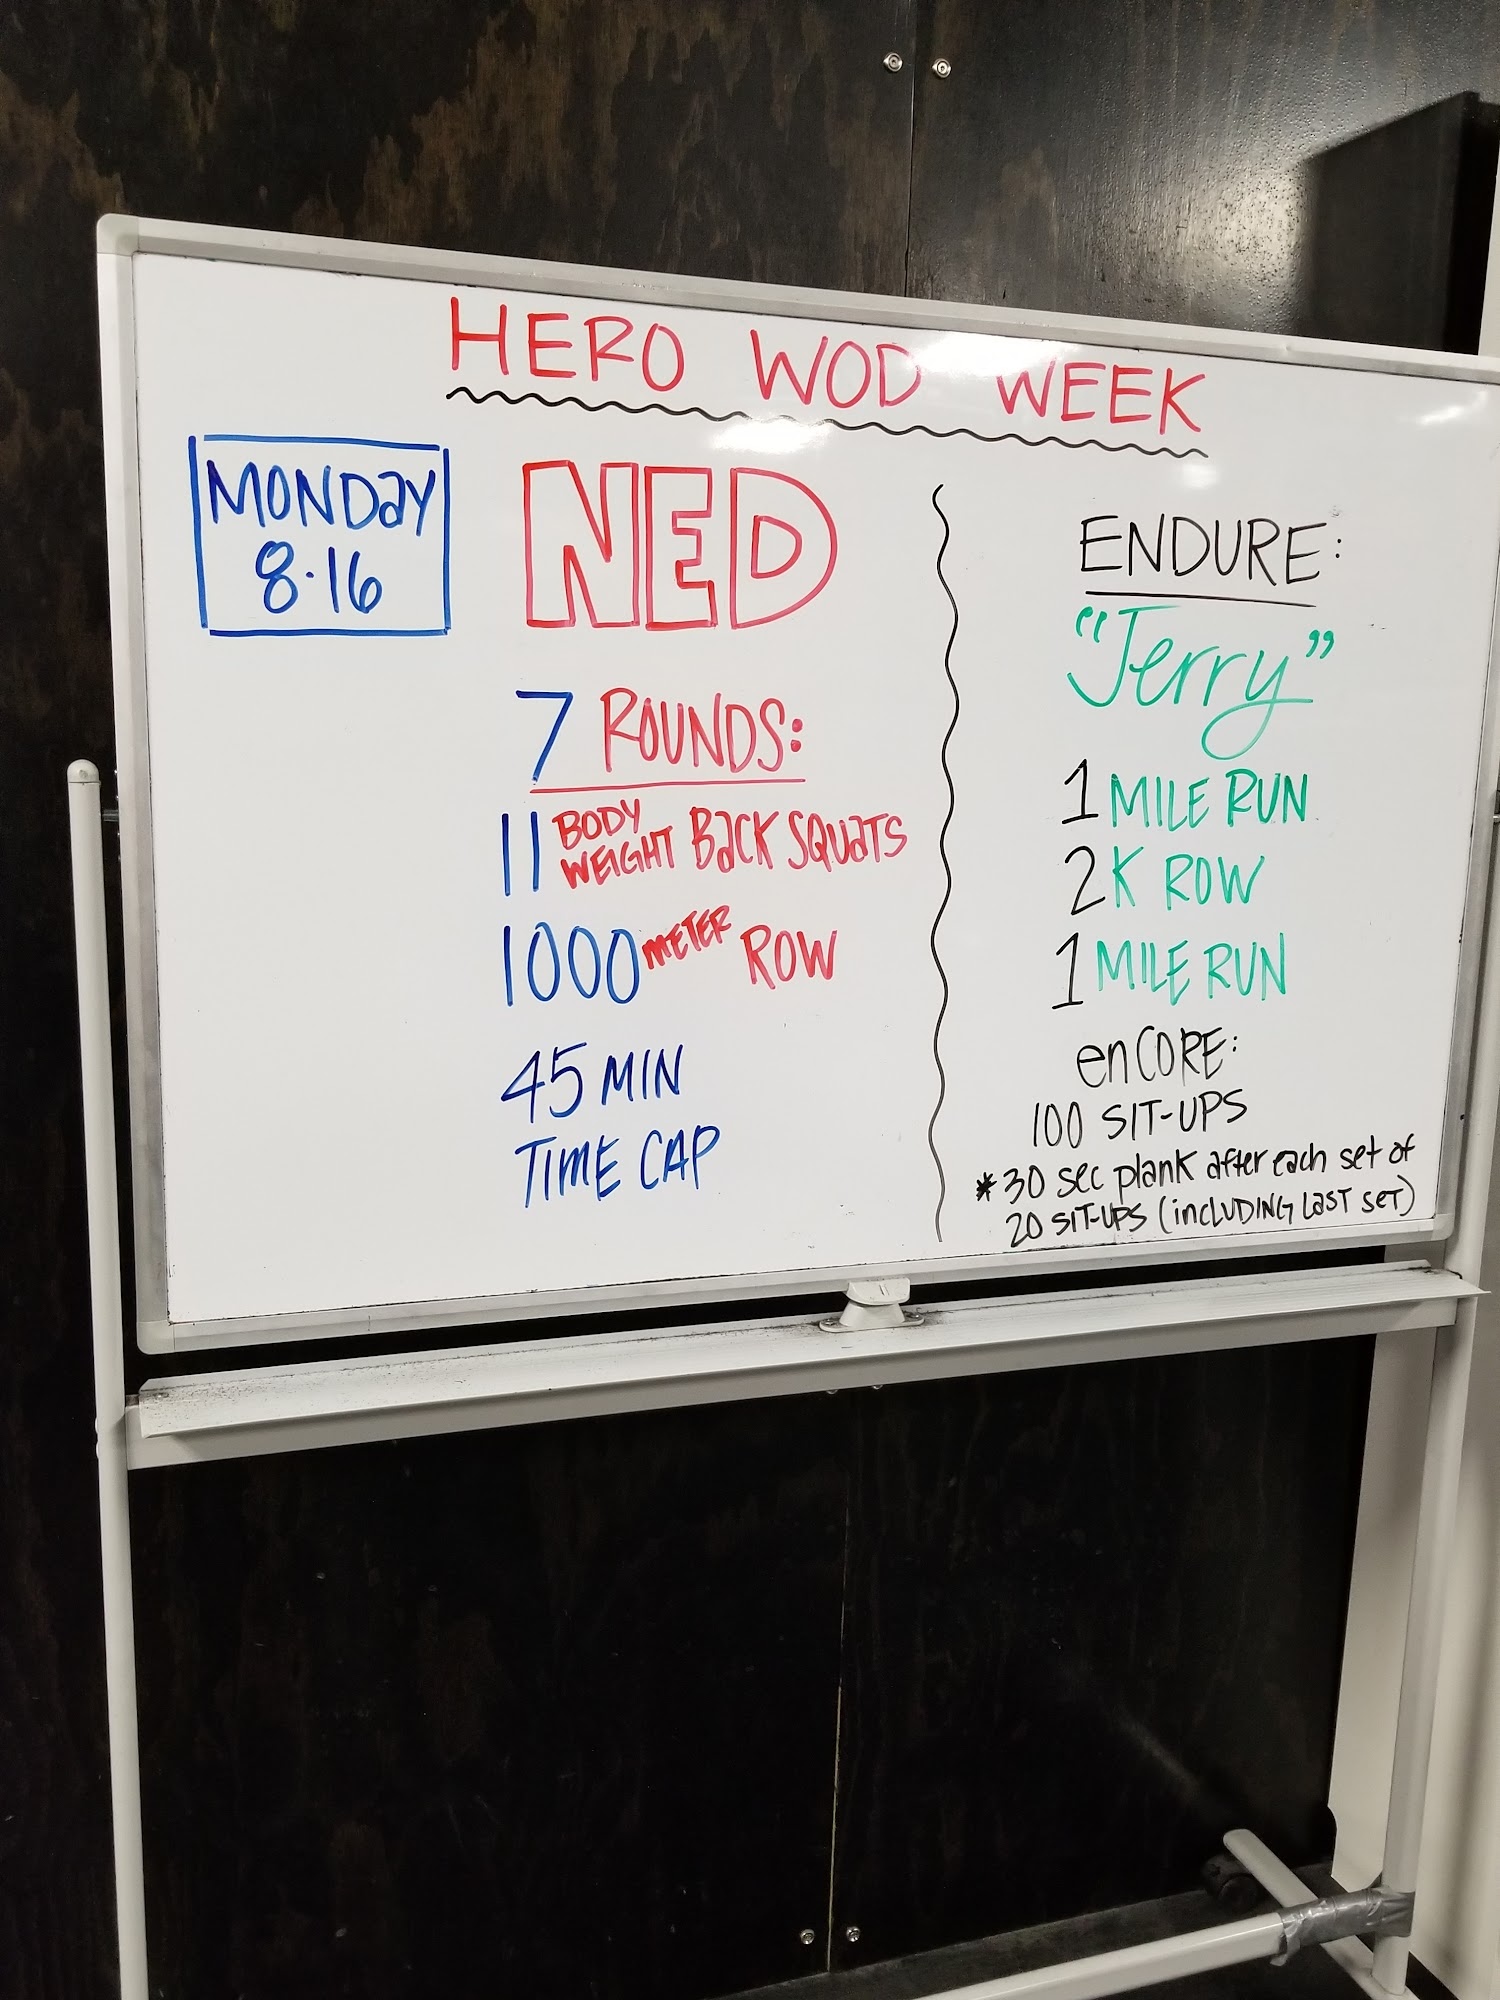 HERO WOD WEEK
MONDAY
8·16
NED
7 ROUNDS:
11 BODY WEIGHT BACK SQUATS
1000 METER ROW
45 MIN
TIME CAP
ENDURE:
"Jerry"
1 MILE RUN
2K ROW
1 MILE RUN
enCORE:
100 SIT-UPS
*30 sec plank after each set of
20 SIT-UPS (incLUDING LAST SET)